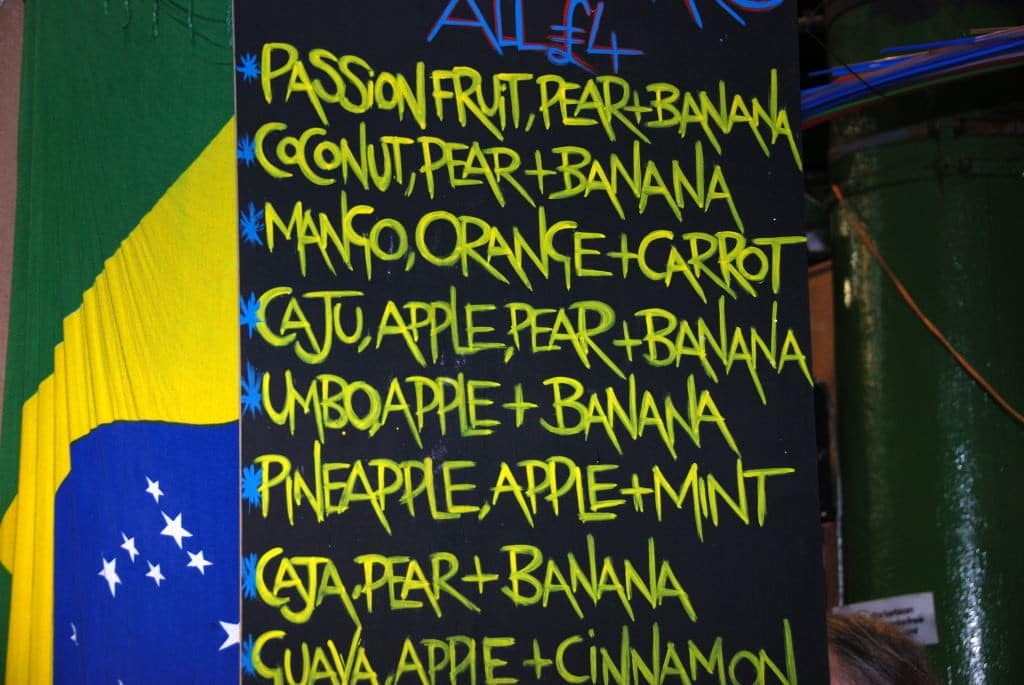 ALL £4
* PASSION FRUIT, PEAR + BANANA
* COCONUT, PEAR + BANANA
* MANGO, ORANGE + CARROT
* CAJU, APPLE, PEAR + BANANA
* UMBO, APPLE + BANANA
* PINEAPPLE, APPLE + MINT
* CAJA, PEAR + BANANA
* GUAVA, APPLE + CINNAMON